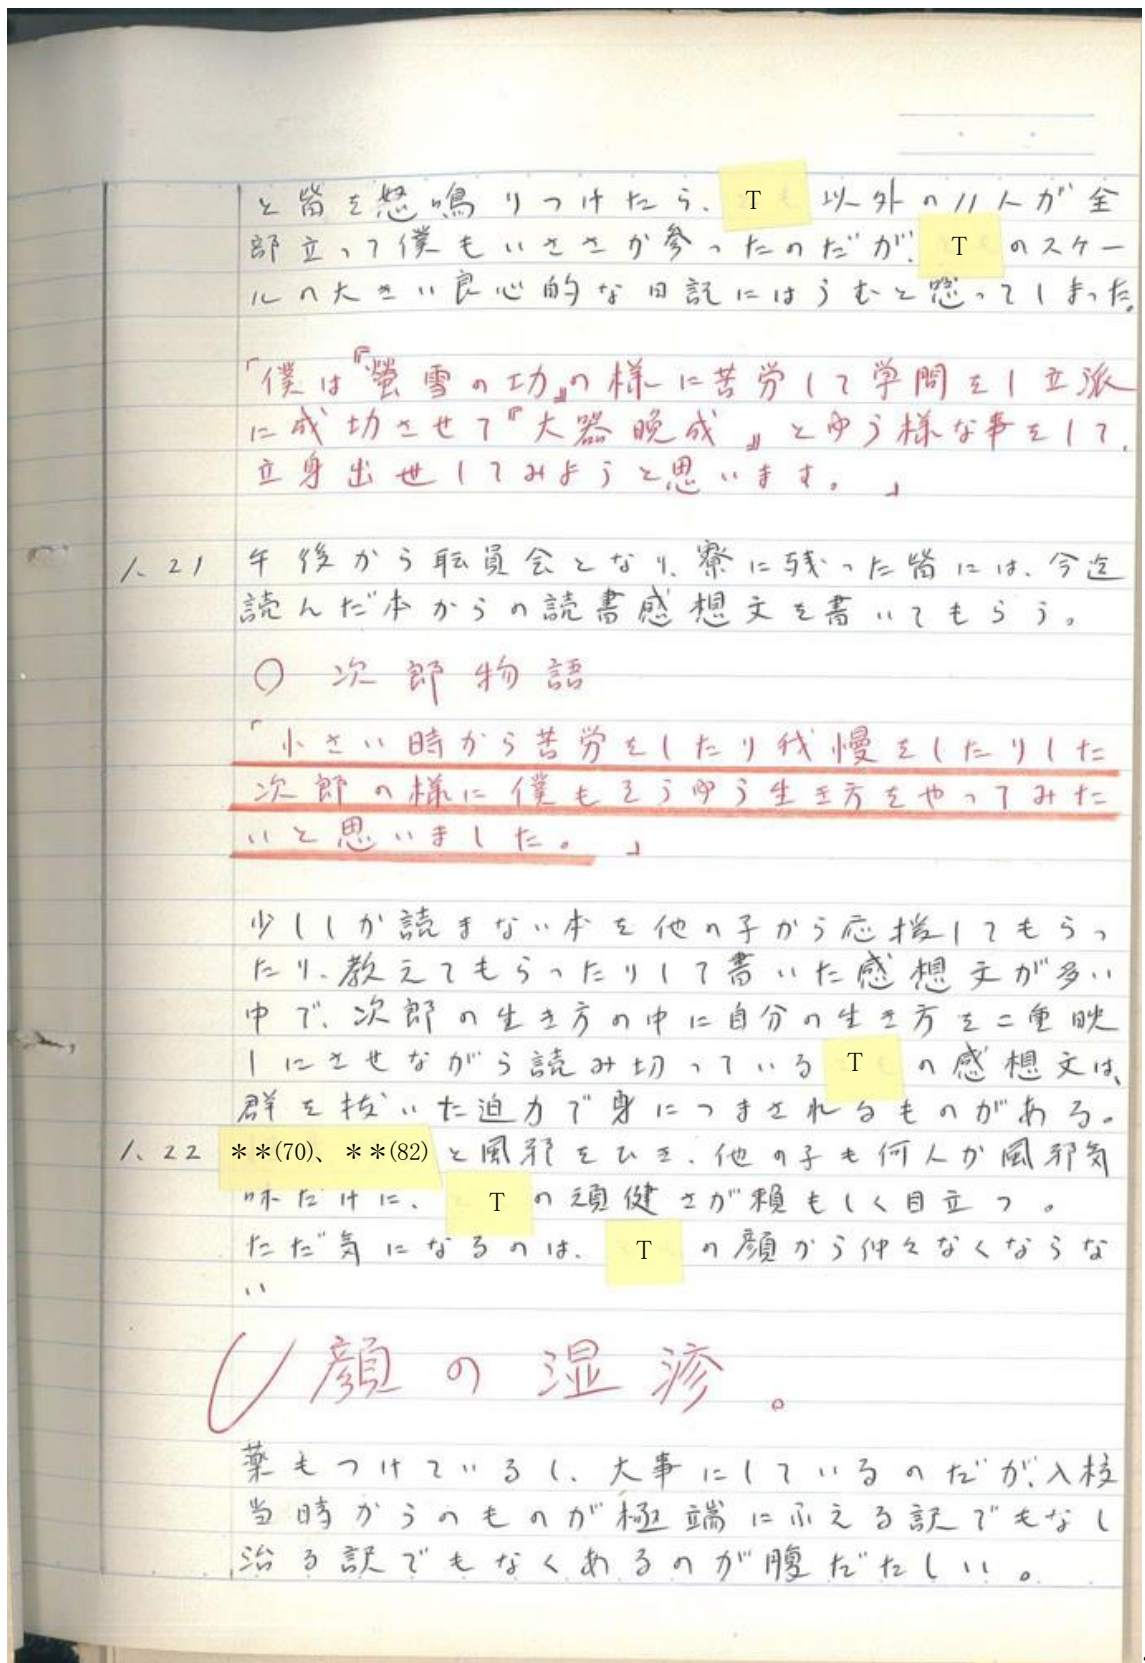 と皆を怒鳴りつけたら、T以外の11人が全
部立って僕もいささか参ったのだが、Tのスケー
ルの大きい良心的な日記にはうむと唸ってしまった。
「僕は『螢雪の功』の様に苦労して学問をし立派
に成功させて『大器晩成』とゆう様な事をして、
立身出世してみようと思います。」
1.21 午後から転員会となり、寮に残った皆には、今迄
読んだ本からの読書感想文を書いてもらう。
○ 次郎物語
「小さい時から苦労をしたり我慢をしたりした
次郎の様に僕もそうゆう生き方をやってみた
いと思いました。」
少ししか読まない本を他の子から応援してもらっ
たり、教えてもらったりして書いた感想文が多い
中で、次郎の生き方の中に自分の生き方を二重映
しにさせながら読み切っているTの感想文は、
群を抜いた迫力で身につまされるものがある。
1.22 **(70)、**(82)と風邪をひき、他の子も何人か風邪気
味だけに、Tの頑健さが頼もしく目立つ。
ただ気になるのは、Tの顔から仲々なくならな
い
顔の湿疹。
薬もつけているし、大事にしているのだが、入校
当時からのものが極端にふえる訳でもなし
治る訳でもなくあるのが腹だたしい。